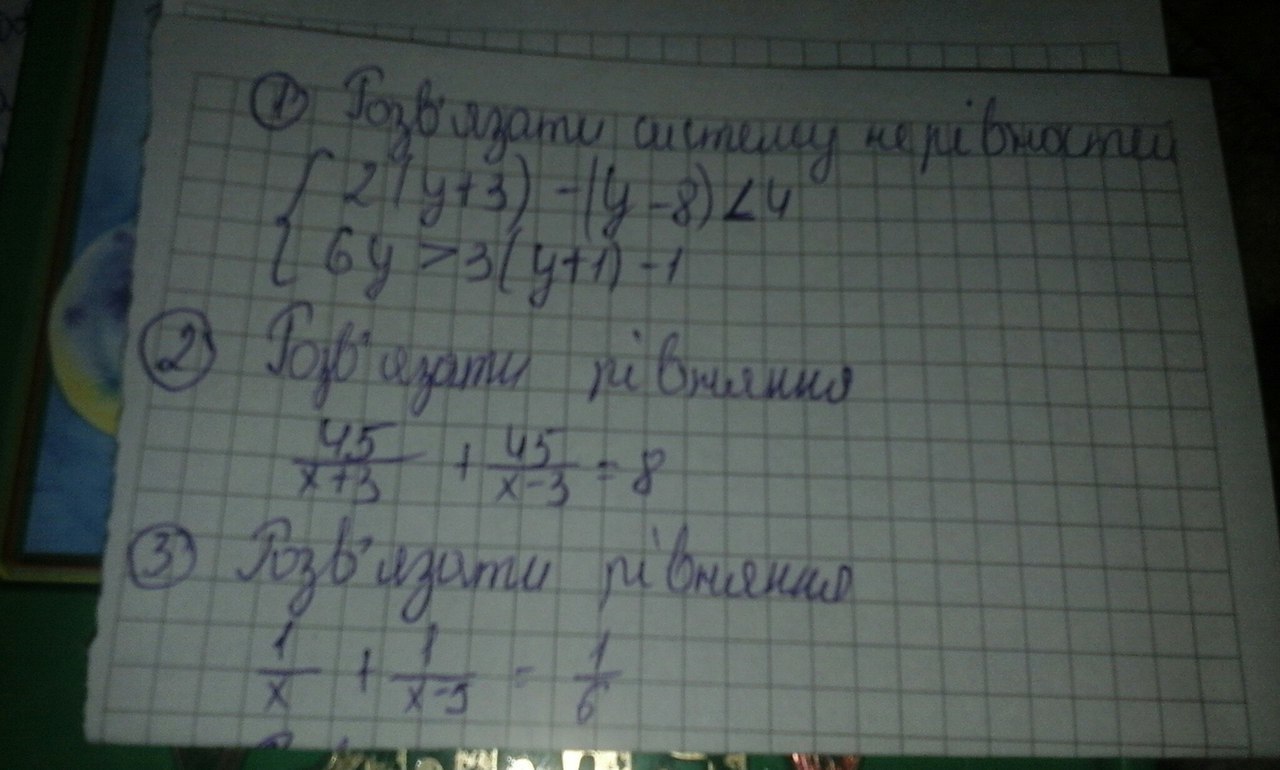 ① Розв'язати систему нерівностей
{ 2(y+3) - (y-8) < 4
6y > 3(y+1) - 1
② Розв'язати рівняння
45/(x+3) + 45/(x-3) = 8
③ Розв'язати рівняння
1/x + 1/(x-5) = 1/6